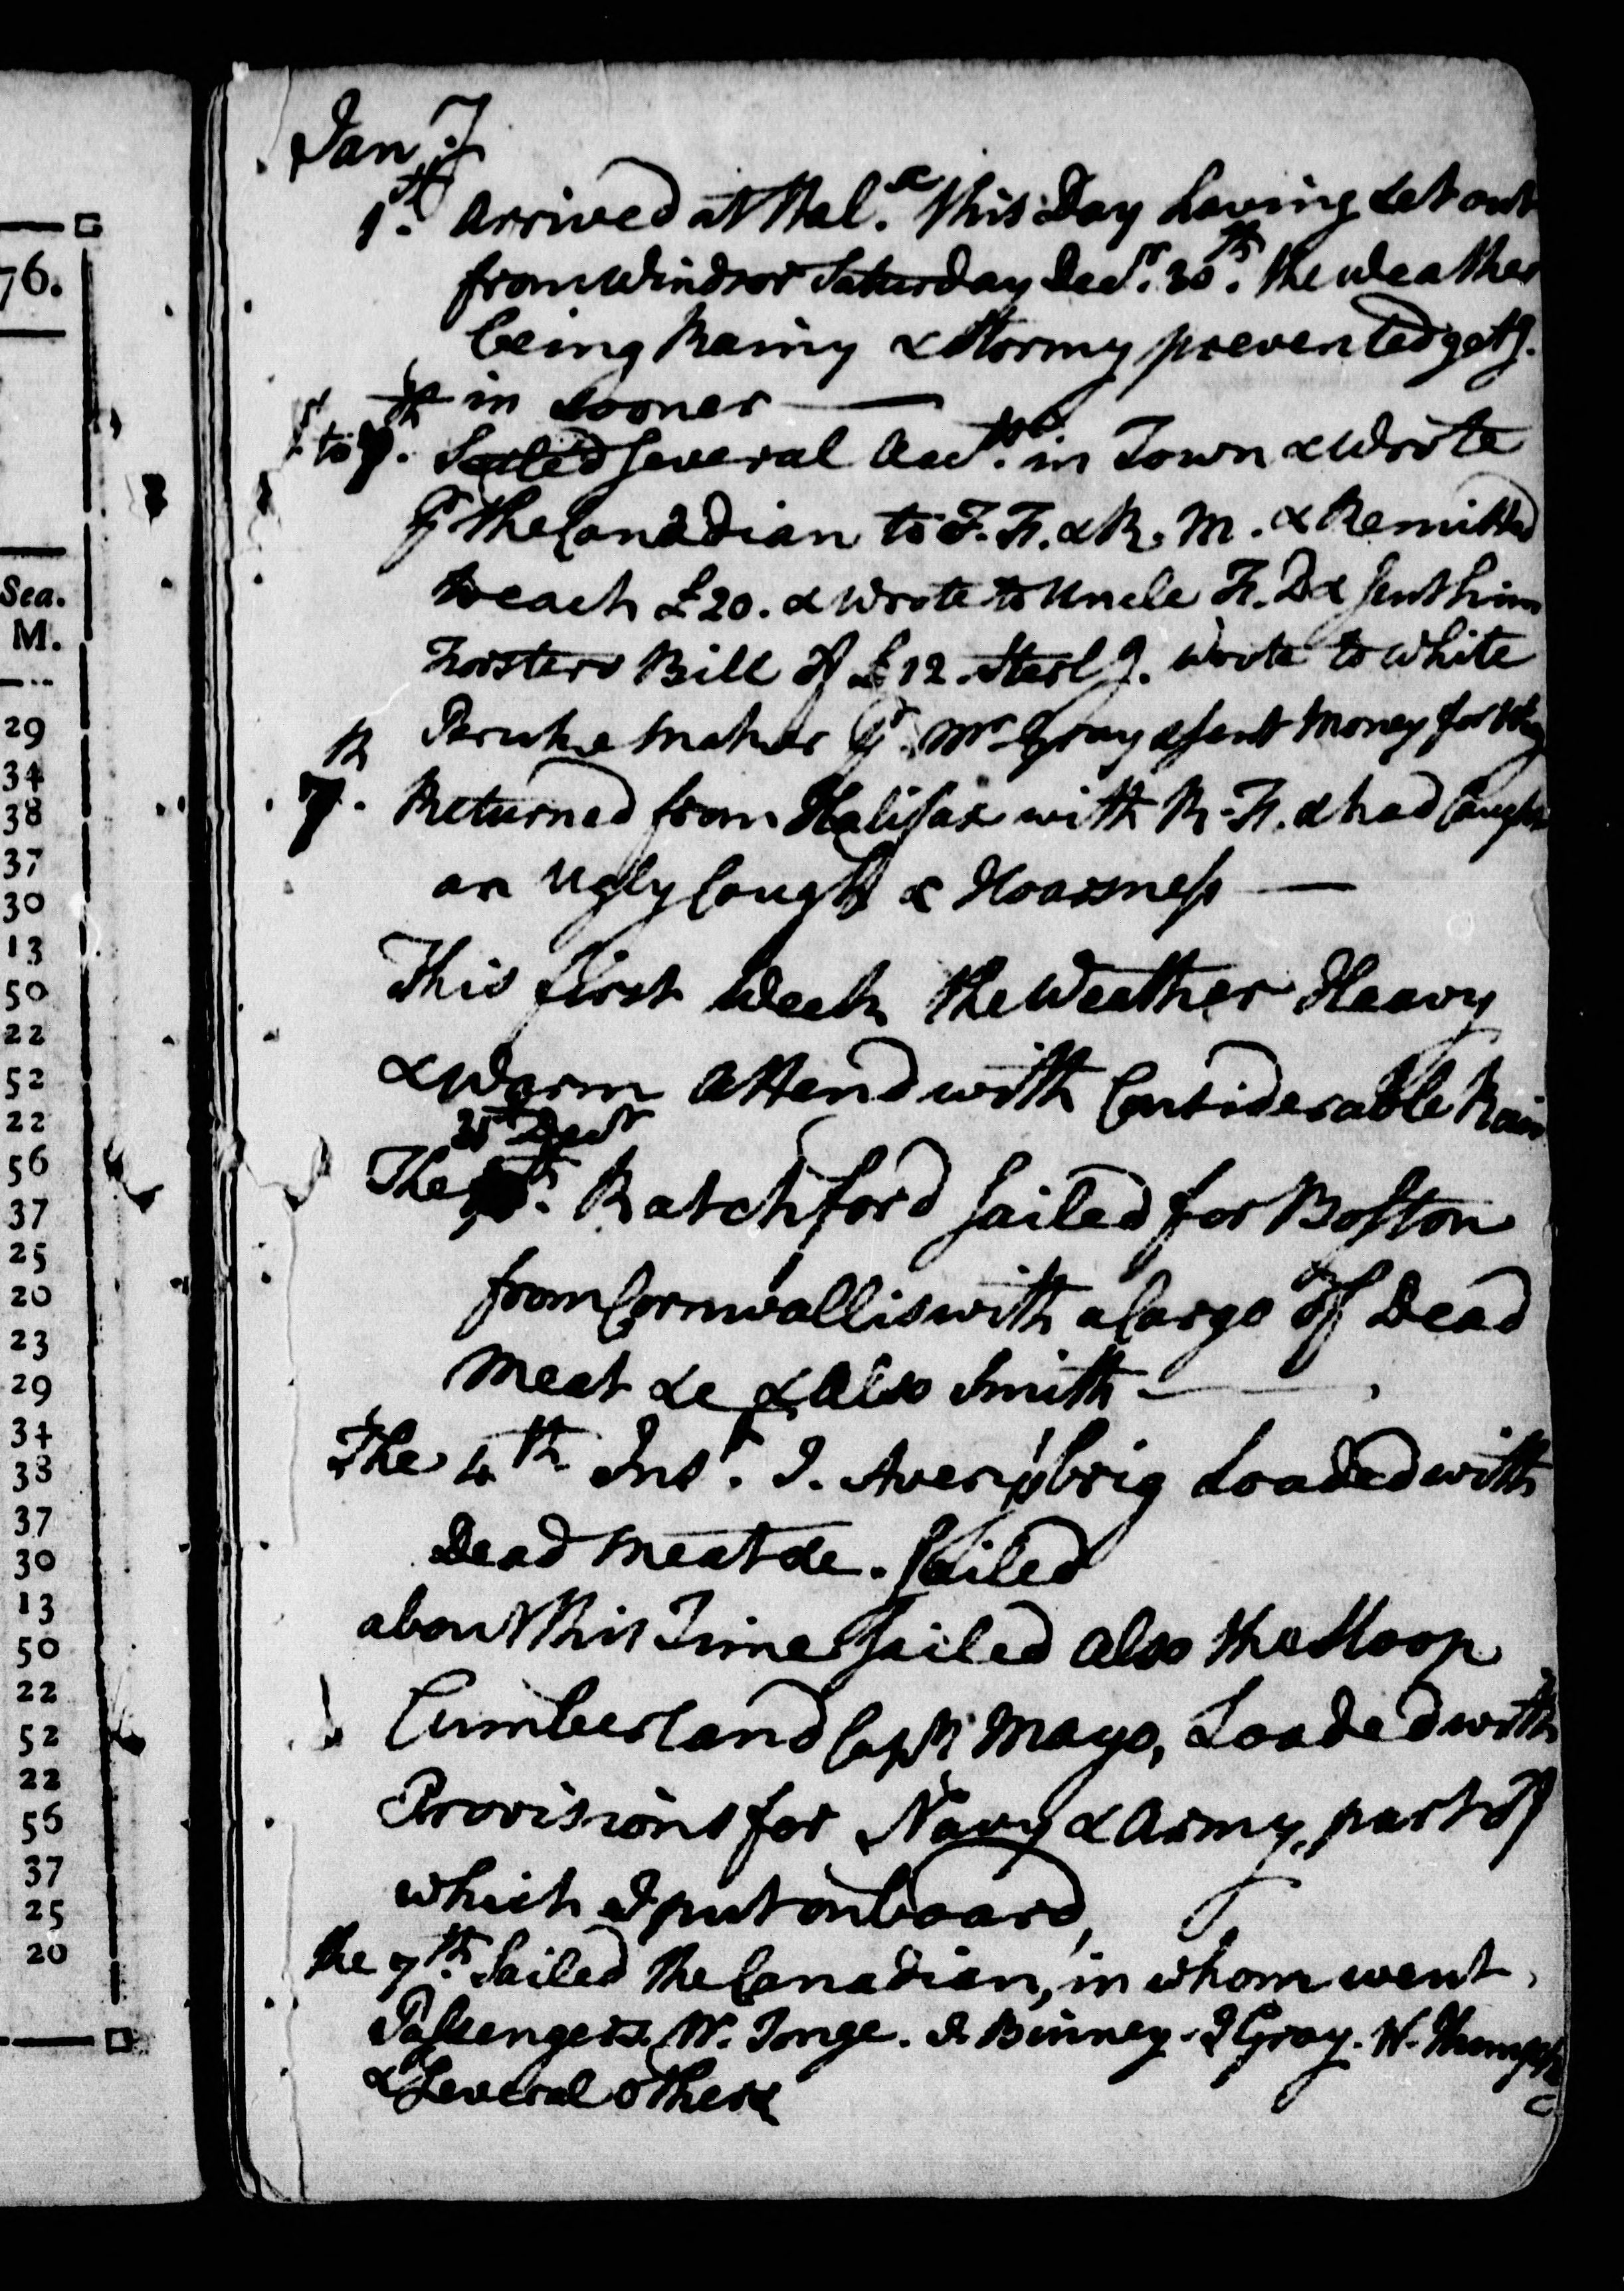 76.
Sea.
M.
29
34
38
37
30
13
50
22
52
22
56
37
25
20
23
29
34
38
37
30
13
50
22
52
22
56
37
25
20
Jan.y
1st. Arrived at Hal.x this Day having Set out
from Windsor Saturday Decr. 30th. the Weather
being Rainy & Stormy prevented getg.
in Sooner —
1st to 7th. Settled Several Acctts. in Town & Wrote
pr the Canadian to F. F. & R. M. & Remitted
to each £20. & Wrote to Uncle F. D & Sent him
Forsters Bill of £12. Sterlg. Wrote to White
Peruke maker pr. Mr Gray & Sent Money for
7th. Returned from Halifax with R. F. & had Caught
an Ugly Cough & Hoarsness —
This first Week the Weather Heavy
& Warm Attend with Considerable Rain
The 25th Decr Ratchford Sailed for Boston
from Cornwallis with a Cargo of Dead
Meat &c & Also Smith —
The 4th Inst. J. Avery's brig Loaded with
Dead Meat &c. Sailed
about this Time Sailed also the Sloop
Cumberland Captn Mayo, Loaded with
Provisions for Navy & Army, part of
which I put on board,
the 7th. Sailed the Canadian, in whom went
Passengers W. Tonge. J. Binney. J Gray. W.
& Several others